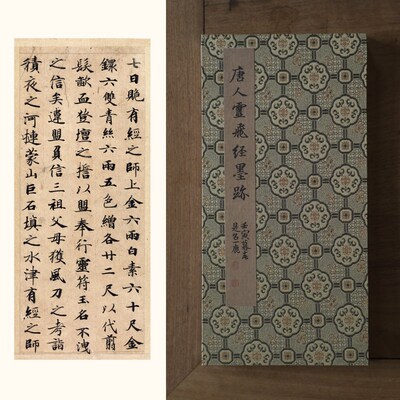 七日晚有經之師上金六兩白素六十尺金
鐶六雙青絲六兩五色繒各廿二尺以代翦
髮歃血登壇之擔以盟奉行靈符玉名不洩
之信矣違盟負信三祖父母獲風刀之考詣
積夜之河摙蒙山巨石填之水津有經之師
唐人靈飛经墨跡